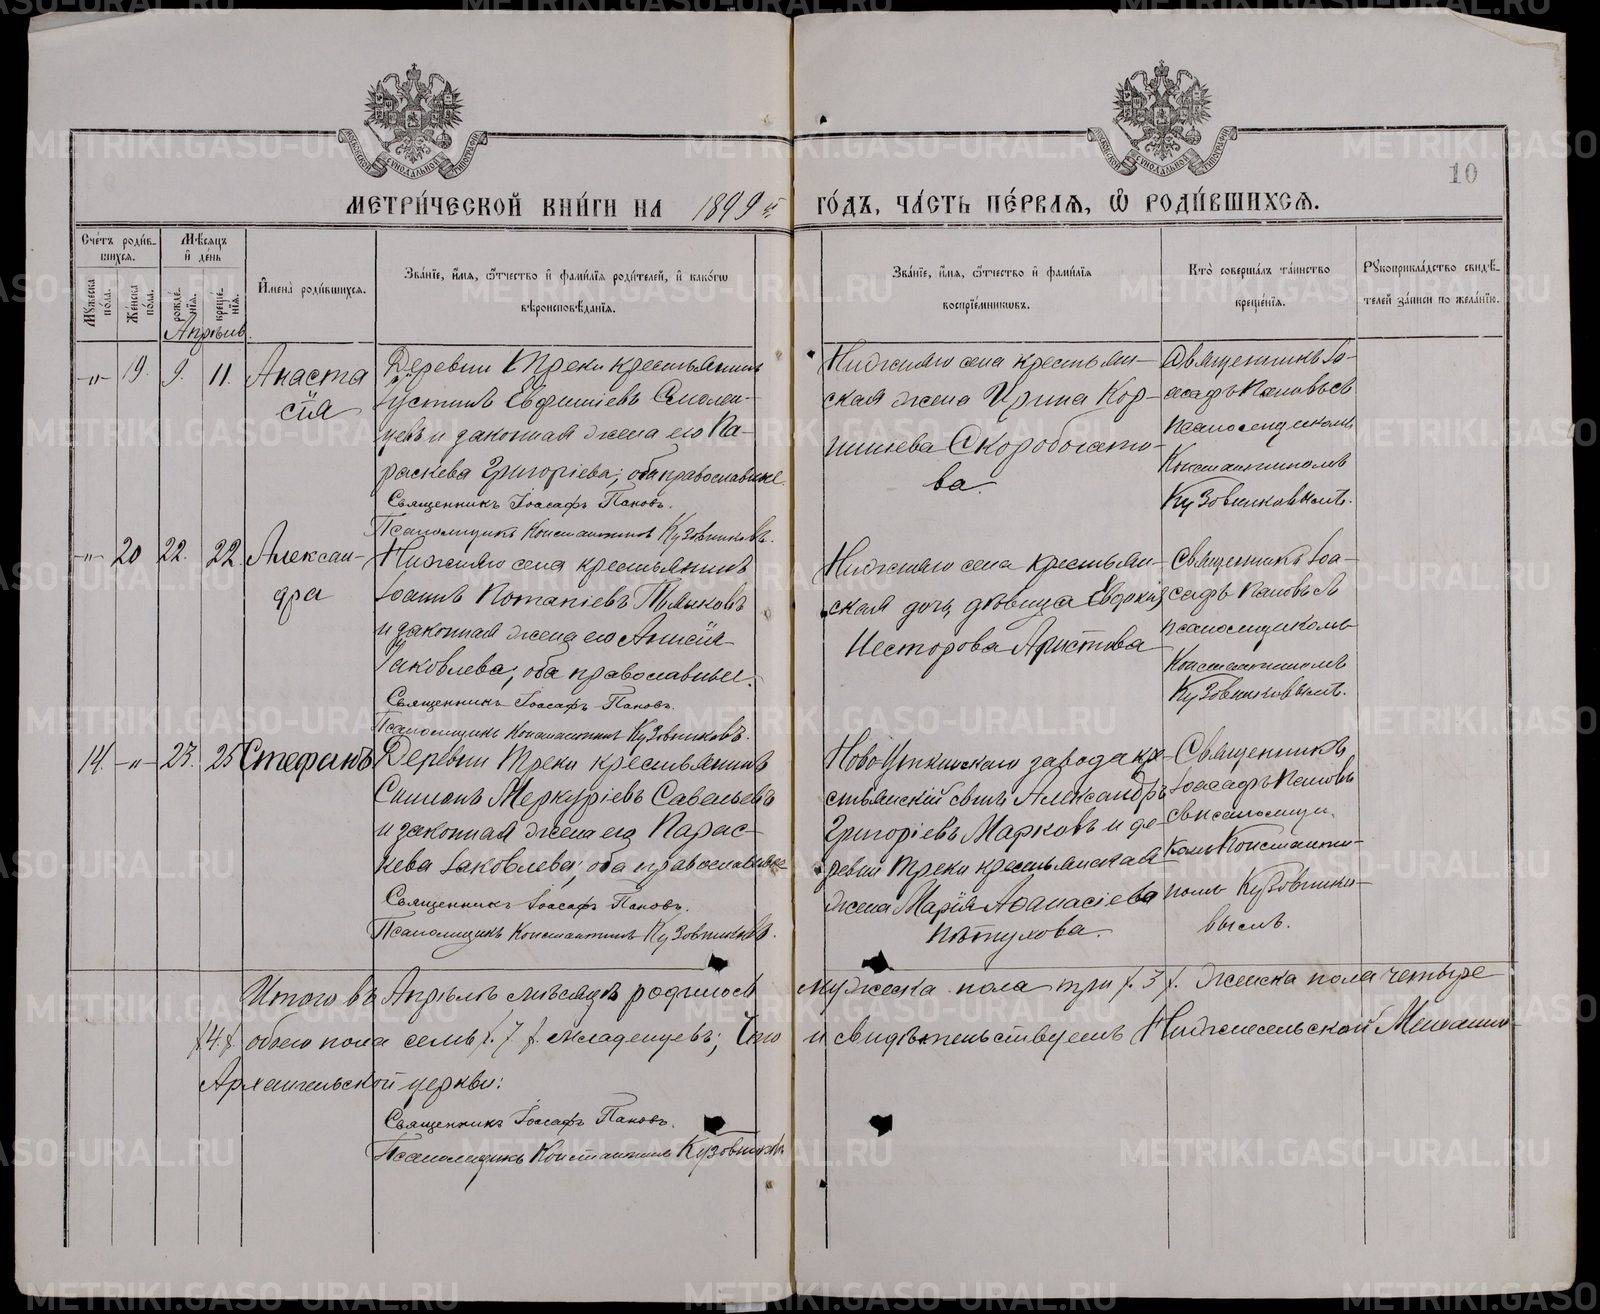 МЕТРИ́ЧЕСКОЙ КНИ́ГИ НА 1899 й ГО́ДЪ, ЧА́СТЬ ПЕ́РВАѦ, Ѡ РОДИ́ВШИХСѦ.
10
Сче́тъ роди́в-
шихся.
Мѣ́сяцъ
и̂ де́нь
Мꙋ́жеска по́ла.
Же́нска по́ла.
рожде́нїѧ.
креще́нїѧ.
И̂мена̀ роди́вшихся.
Зва́нїе, и̂́мя, ѻ̂́тчество и̂ фами́лїѧ роди́телей, и̂ како́гѡ
вѣроисповѣ́данїѧ.
Зва́нїе, и̂́мя, ѻ̂́тчество и̂ фами́лїѧ
воспрїе́мникѡвъ.
Кто̀ соверша́лъ та́инство
креще́нїѧ.
Рꙋкоприкла́дство свидѣ́-
телей за́писи по жела́нїю.
Апрѣль.
-„- 19. 9. 11.
Анаста
сія
Деревни Треки крестьянинъ
Іустинъ Евфиміевъ Смолен-
цевъ и законная жена его Па-
раскева Григоріева; оба православные.
Священникъ Іоасафъ Пановъ.
Псаломщикъ Константинъ Кузовниковъ.
Нижняго села крестьян-
ская жена Ирина Кор-
нилиева Скоробогато-
ва.
Священникъ Іо-
асафъ Пановъ съ
псаломщикомъ
Константиномъ
Кузовниковымъ.
-„- 20 22. 22.
Алексан-
дра
Нижняго села крестьянинъ
Іоаннъ Потапіевъ
и законная жена его Анисія
Іаковлева; оба православные.
Священникъ Іоасафъ Пановъ.
Псаломщикъ Константинъ Кузовниковъ.
Нижняго села крестьян-
ская дочь девица Евдокія
Несторова Аристова
Священникъ Іоа-
сафъ Пановъ съ
псаломщикомъ
Константиномъ
Кузовниковымъ.
14. -„- 23. 25
Стефанъ
Деревни Треки крестьянинъ
Симеонъ Меркуріевъ Савельевъ
и законная жена его Парас-
кева Іаковлева; оба православные
Священникъ Іоасафъ Пановъ.
Псаломщикъ Константинъ Кузовниковъ.
Ново Уткинскаго завода кре-
стьянскій сынъ Александръ
Григоріевъ Марковъ и де-
ревни Треки крестьянская
жена Марія Аѳанасіева
Пѣтухова.
Священникъ
Іоасафъ Пановъ
съ псаломщи-
комъ Константи-
номъ Кузовнико-
вымъ.
Итого въ Апрѣлѣ мѣсяцѣ родилось мужеска пола три /. 3 /. женска пола четыре
/.4./. обоего пола семь /. 7 /. младенцевъ; что и свидѣтельствуемъ Нижнесельской Михаило-
Архангельской церкви:
Священникъ Іоасафъ Пановъ.
Псаломщикъ Константинъ Кузовниковъ
METRIKI.GASO-URAL.RU